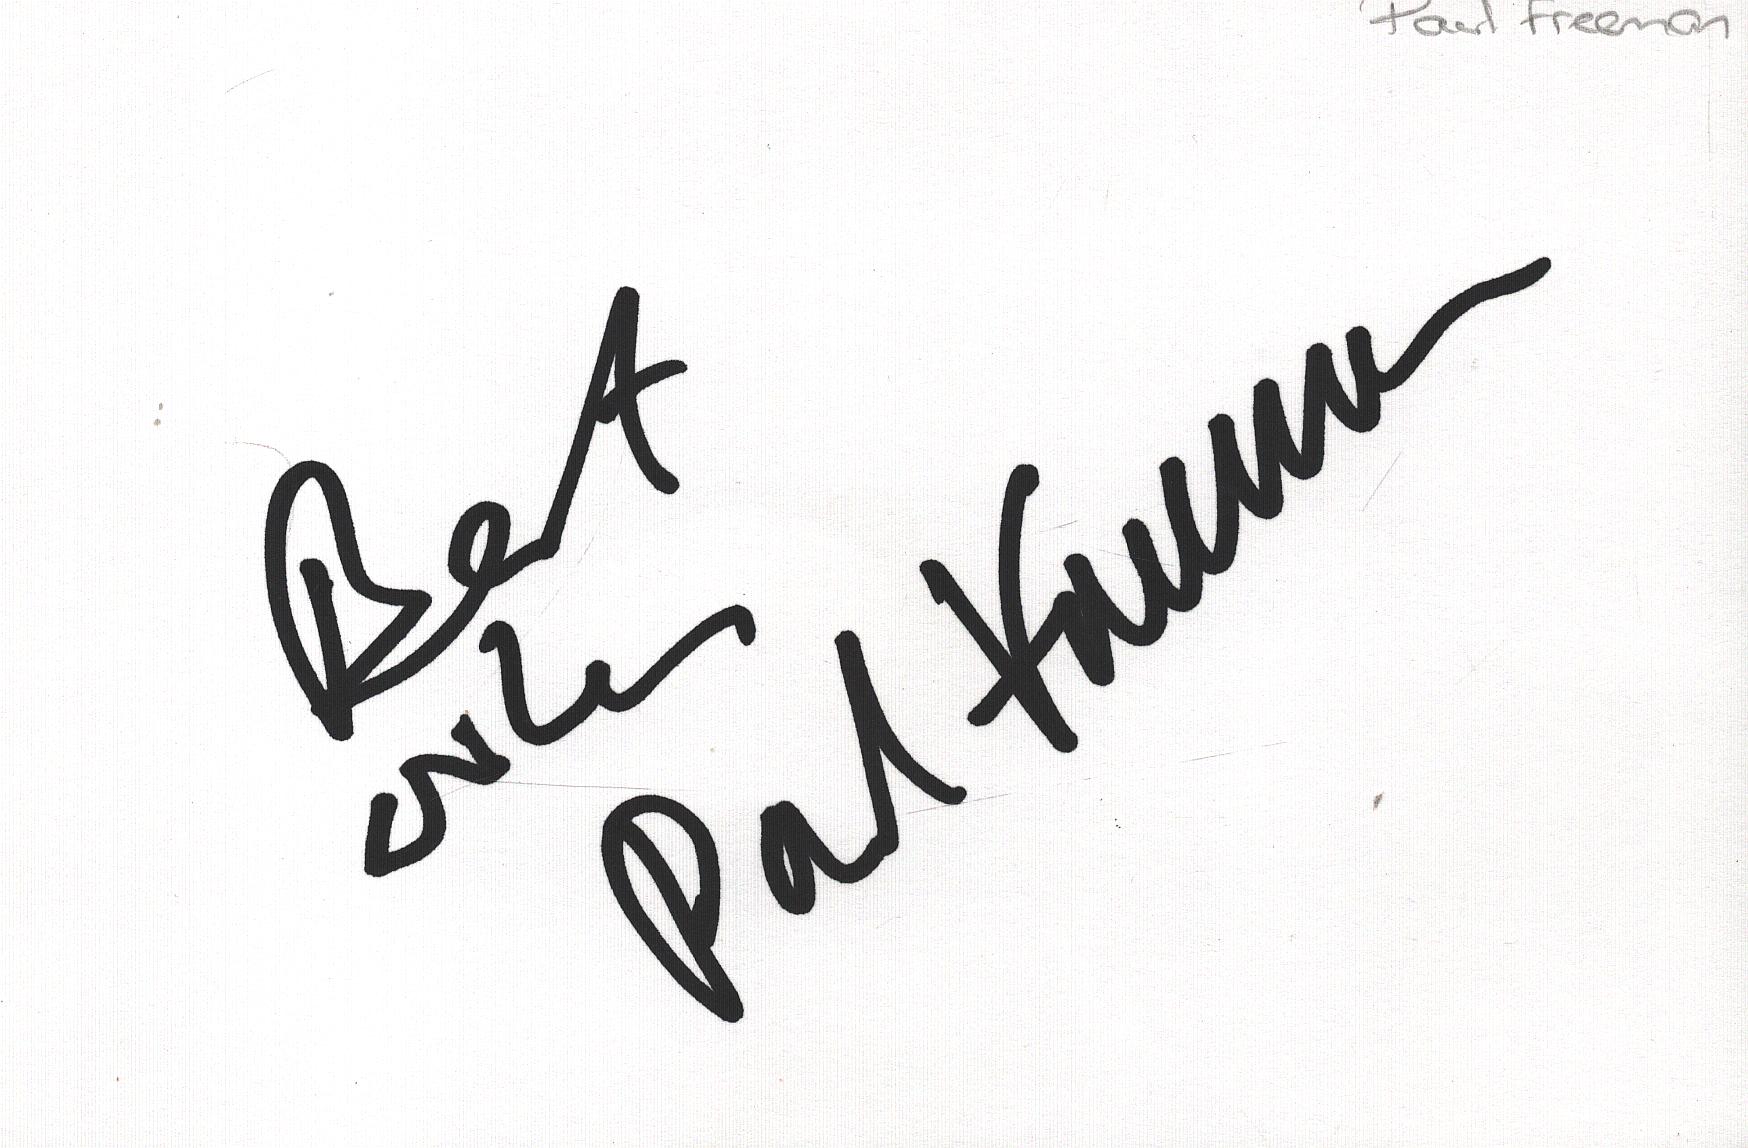 Paul Freeman
Best
wishes
Paul Freeman